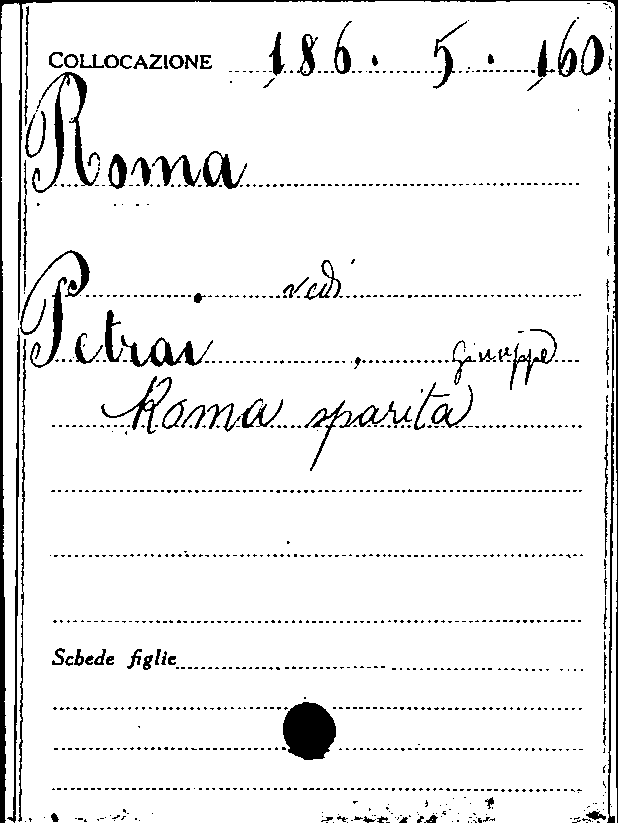 COLLOCAZIONE 186. 5. 160
Roma
vedi
Petrai, Giuseppe
Roma sparita
Schede figlie